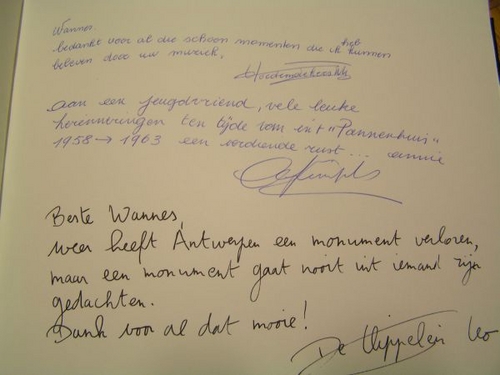 Wannes
bedankt voor al die schoon momenten die ik heb kunnen
beleven door uw muziek.
aan een jeugdvriend, vele leuke
herinneringen ten tijde van in't "Pannenhuis"
1958 → 1963 een verdiende rust... annie
Beste Wannes,
weer heeft Antwerpen een monument verloren,
maar een monument gaat nooit uit iemand zijn
gedachten.
Dank voor al dat moois!
De Leo